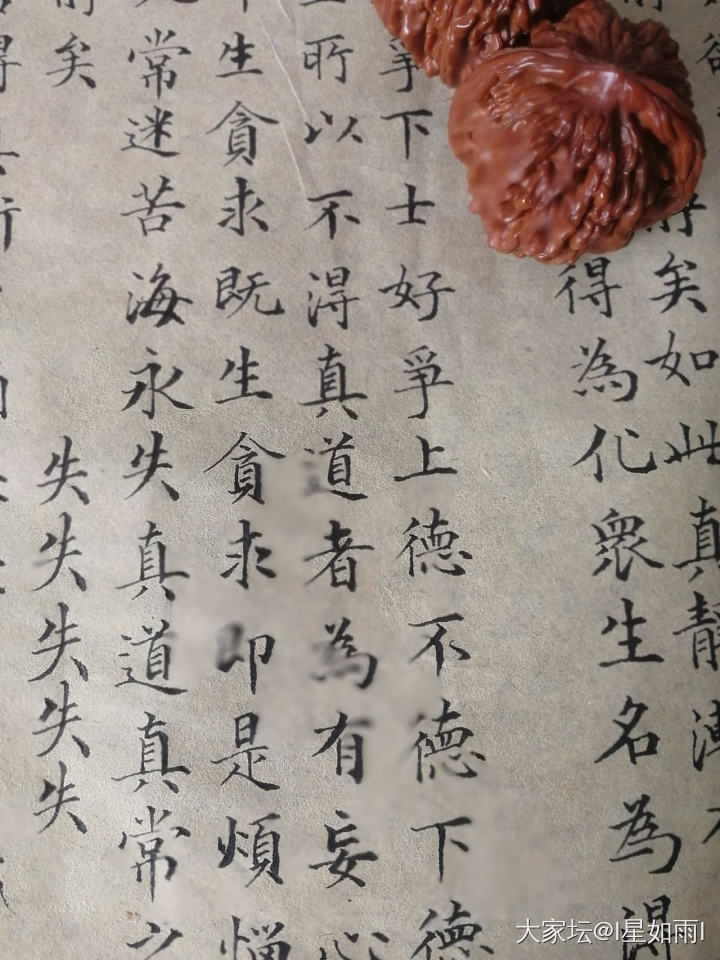 矣如此真靜漸
得為化眾生名為得
爭下士好爭上德不德下德
所以不得真道者為有妄心
生貪求既生貪求即是煩惱
常迷苦海永失真道真常之
矣
失失失失失
得
大家坛@I星如雨I